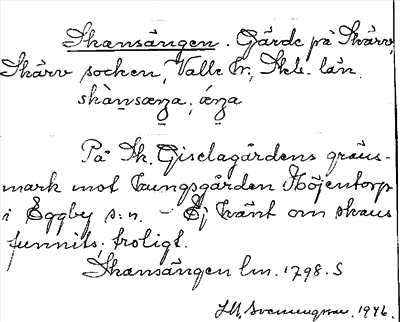 Skansängen. Gärde på Skärv,
Skärv socken, Valle hr, Skb. län.
skànsæŋa, ǽŋa
På Sk. Giselagårdens gräns-
mark mot kungsgården Höjentorp
i Eggby s:n. - Ej känt om skans
funnits, troligt.
Skansängen lm. 1798. S
1946.